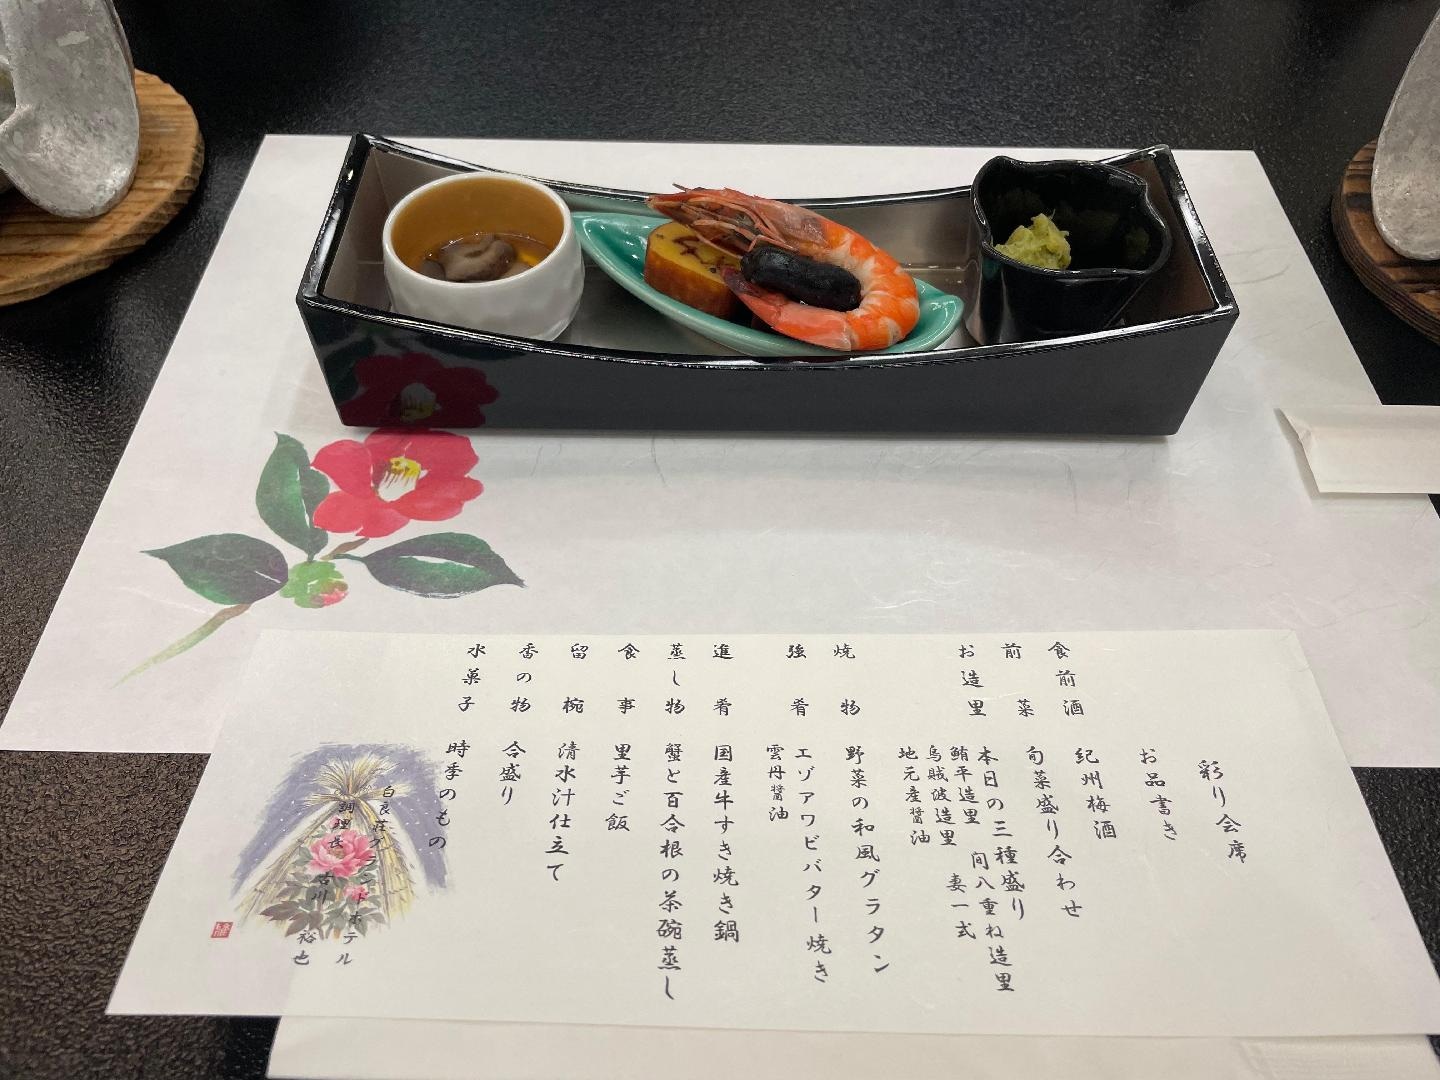 彩り会席
お品書き
食前酒 紀州梅酒
前菜 旬菜盛り合わせ
お造里 本日の三種盛り
鮪平造里 間八重ね造里
烏賊波造里 妻一式
地元産醤油
焼物 野菜の和風グラタン
強肴 エゾアワビバター焼き
雲丹醤油
進肴 国産牛すき焼き鍋
蒸し物 蟹と百合根の茶碗蒸し
食事 里芋ご飯
留椀 清水汁仕立て
香の物 合盛り
水菓子 時季のもの
白良荘グランドホテル
調理長 古川 裕也